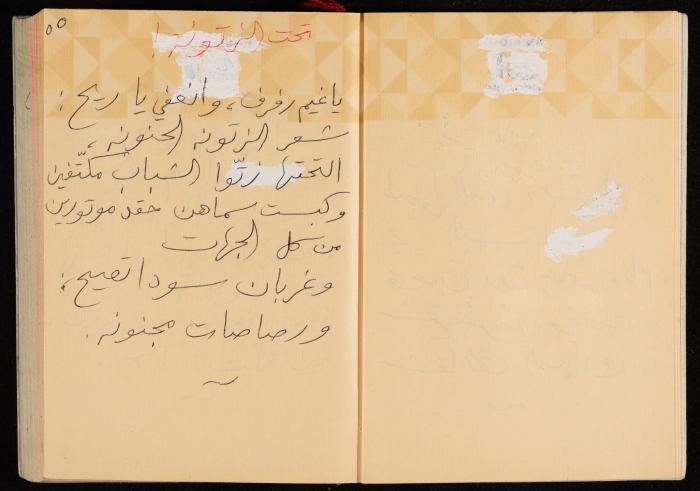 ٥٥
تحت الزتونة!
يا غيم رفرف، وانعفي يا ريح:
شعر الزتونه الحنونه،
التحتها زتّوا الشباب مكتّفين
وكبست سماهن حقد موتورين
من كل الجهات
وغربان سودا تصيح:
ورصاصات مجنونه.